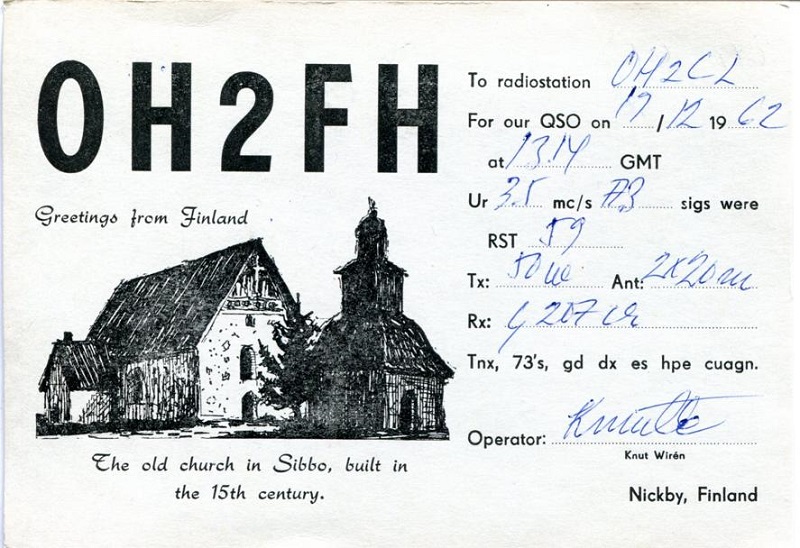 OH2FH
Greetings from Finland
The old church in Sibbo, built in
the 15th century.
To radiostation OH2CL
For our QSO on 19/12 1962
at 13.14 GMT
Ur 3.5 mc/s A3 sigs were
RST 59
Tx: 50w Ant: 2x20m
Rx:
Tnx, 73's, gd dx es hpe cuagn.
Operator: Knutte
Knut Wirén
Nickby, Finland